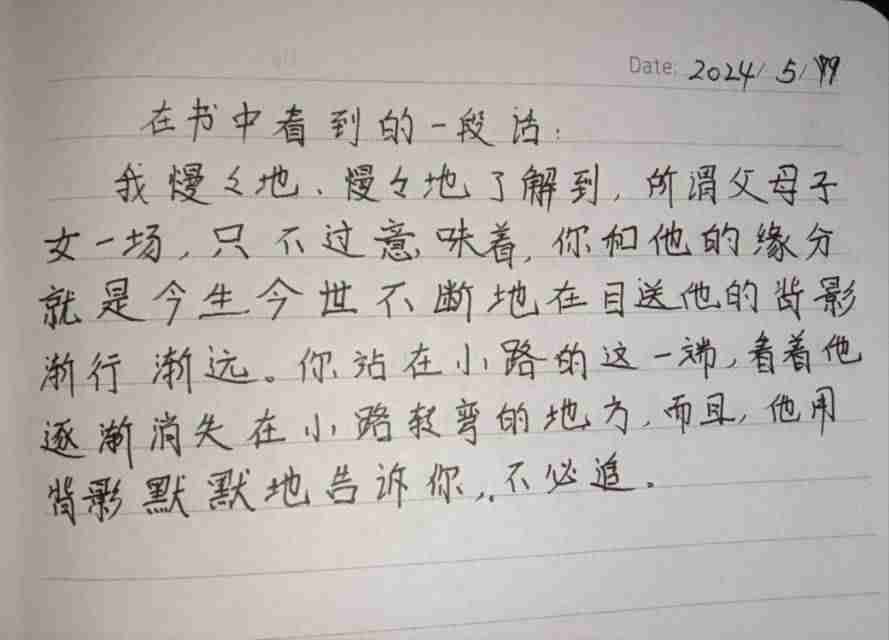 Date: 2024/5/19
在书中看到的一段话:
我慢々地、慢々地了解到,所谓父母子
女一场,只不过意味着,你和他的缘分
就是今生今世不断地在目送他的背影
渐行渐远。你站在小路的这一端,看着他
逐渐消失在小路转弯的地方,而且,他用
背影默默地告诉你,不必追。